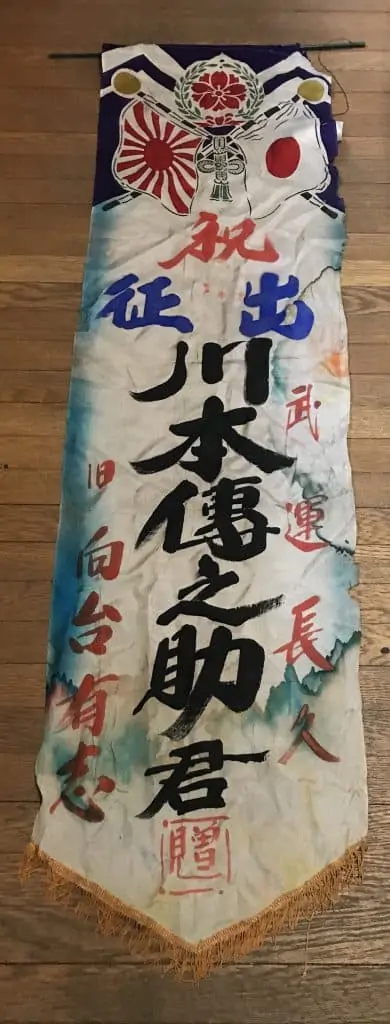 祝
出征
武運長久
川本傳之助君
旧向台有志
贈